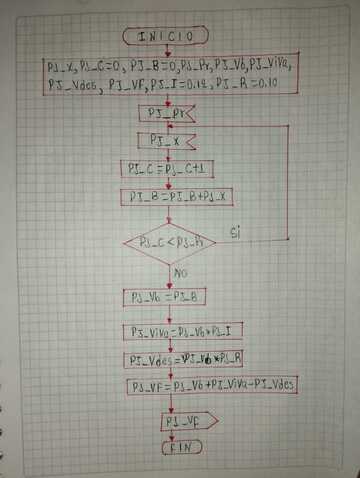 INICIO
PJ_X, PJ_C=0, PJ_B=0, PJ_Pr, PJ_Vb, PJ_Viva,
PJ_Vdes, PJ_VF, PJ_I=0.12, PJ_R=0.10
PJ_Pr
PJ_X
PJ_C=PJ_C+1
PJ_B=PJ_B+PJ_X
PJ_C<PJ_R
Si
NO
PJ_Vb=PJ_B
PJ_Viva=PJ_Vb*PJ_I
PJ_Vdes=PJ_Vb*PJ_R
PJ_VF=PJ_Vb+PJ_Viva-PJ_Vdes
PJ_VF
FIN